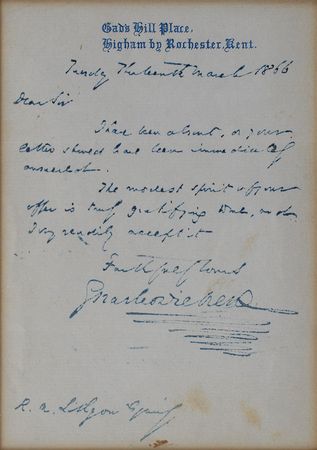 Gad's Hill Place,
Higham by Rochester, Kent.
Tuesday Thirteenth March 1866
Dear Sir
I have been absent, or your
letter should have been immediately
answered.
The modest spirit of your
offer is truly gratifying to me, and
I very readily accept it
Faithfully Yours
Charles Dickens
R. A.